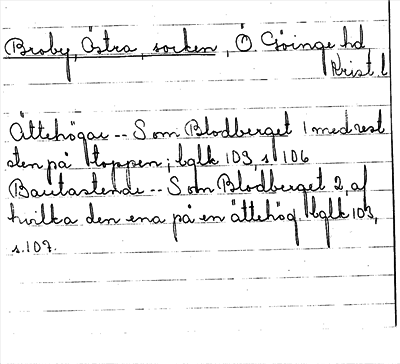 Broby, Östra, socken, Ö. Göinge hd
Krist. l
Ättehögar -- S om Blodberget 1 med rest
sten på toppen; bglk 103, s 106
Bautastenar -- S om Blodberget 2, af
hvilka den ena på en ättehög bglk 103,
s. 107.